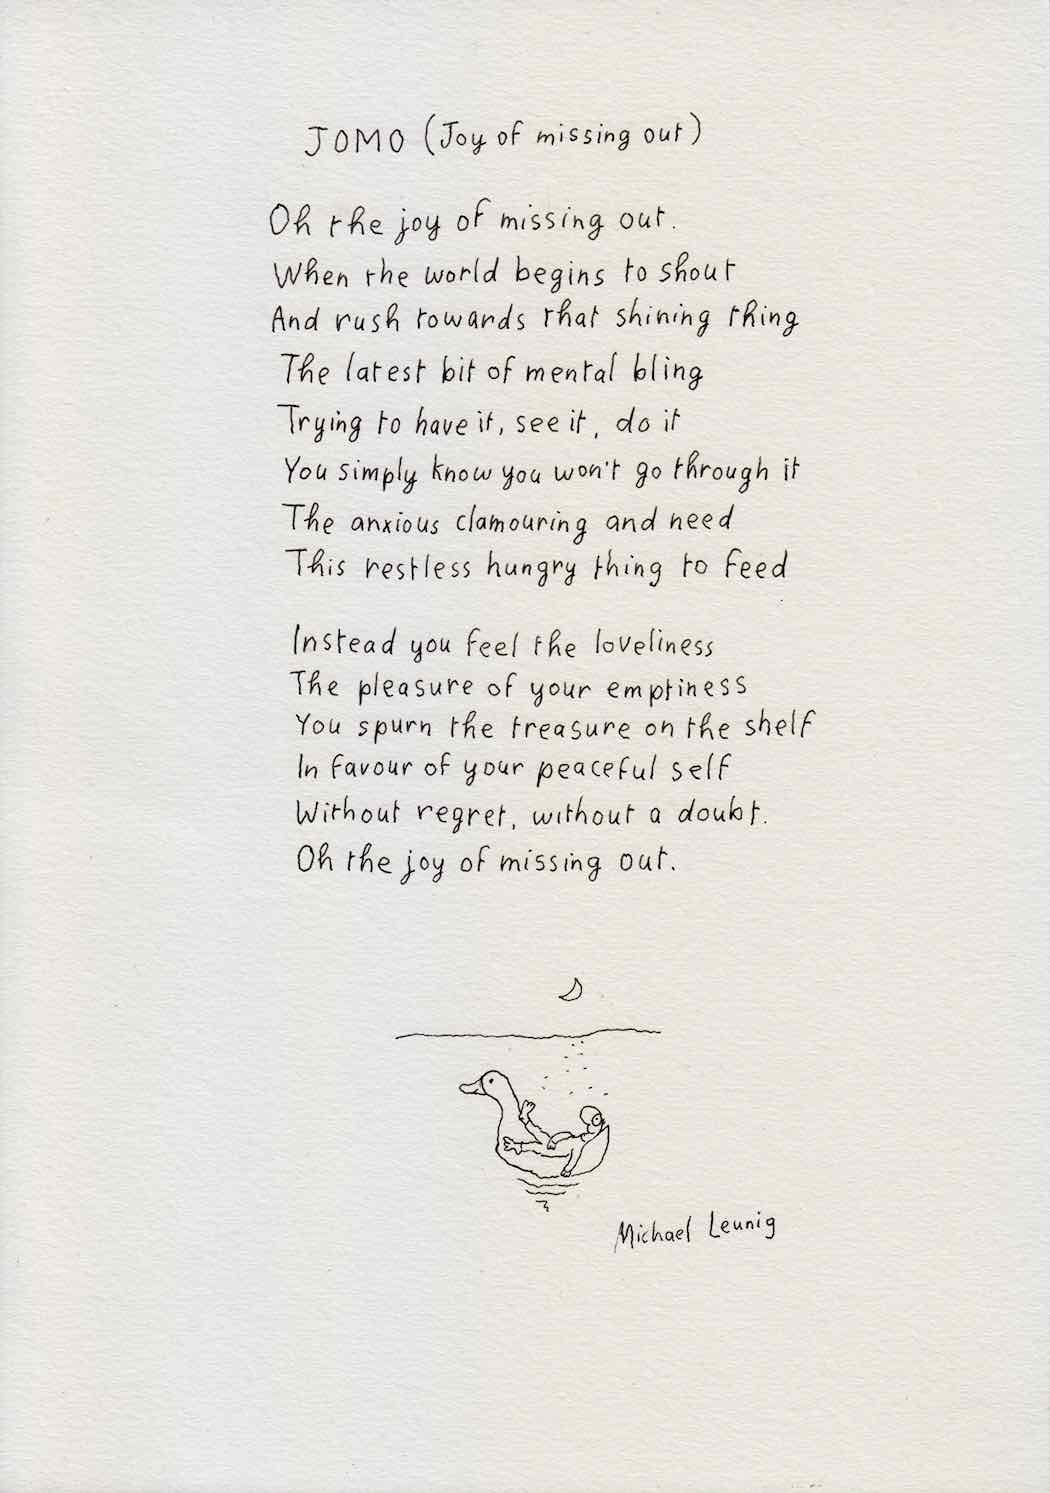 JOMO (Joy of missing out)
Oh the joy of missing out.
When the world begins to shout
And rush towards that shining thing
The latest bit of mental bling
Trying to have it, see it, do it
You simply know you won't go through it
The anxious clamouring and need
This restless hungry thing to feed
Instead you feel the loveliness
The pleasure of your emptiness
You spurn the treasure on the shelf
In favour of your peaceful self
Without regret, without a doubt.
Oh the joy of missing out.
Michael Leunig